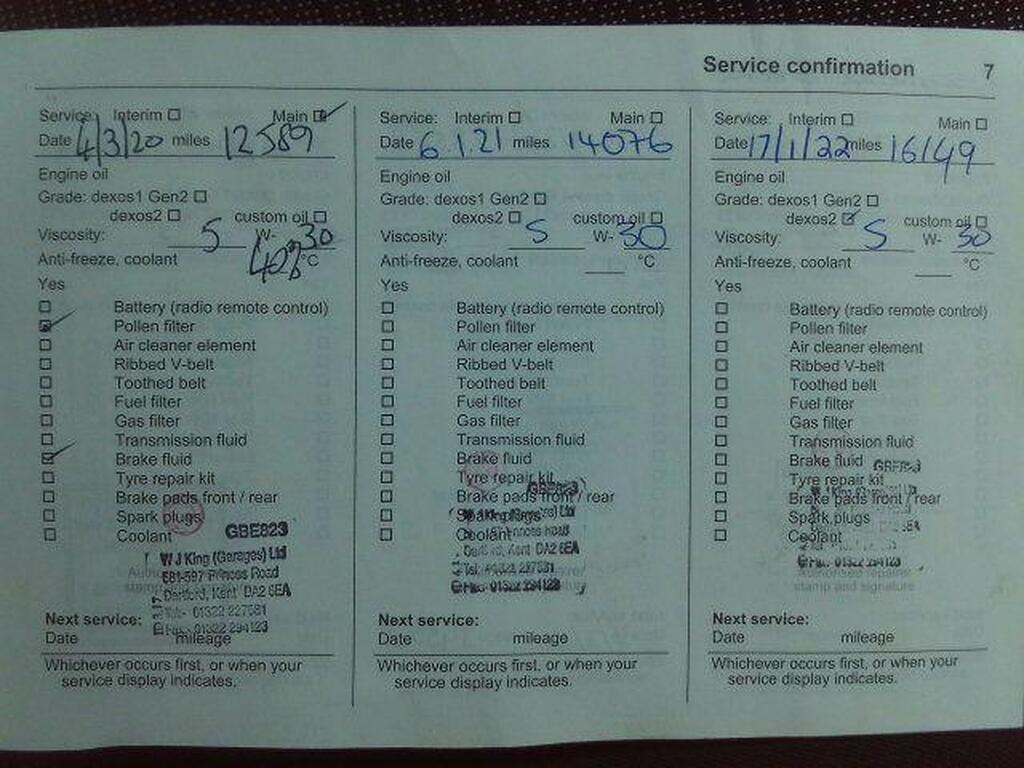 Service confirmation 7
Service: Interim ☐ Main ☑
Date 4/3/20 miles 12589
Engine oil
Grade: dexos1 Gen2 ☐
dexos2 ☐ custom oil ☐
Viscosity: 5 W- 30
Anti-freeze, coolant °C
Yes
☐ Battery (radio remote control)
☑ Pollen filter
☐ Air cleaner element
☐ Ribbed V-belt
☐ Toothed belt
☐ Fuel filter
☐ Gas filter
☐ Transmission fluid
☑ Brake fluid
☐ Tyre repair kit
☐ Brake pads front / rear
☐ Spark plugs
☐ Coolant
GBE823
W J King (Garages) Ltd
581-597 Princes Road
Dartford, Kent DA2 6EA
Tel: 01322 227581
Fax: 01322 294123
Next service:
Date mileage
Whichever occurs first, or when your
service display indicates.
Service: Interim ☐ Main ☐
Date 6 1.21 miles 14076
Engine oil
Grade: dexos1 Gen2 ☐
dexos2 ☐ custom oil ☐
Viscosity: 5 W- 30
Anti-freeze, coolant °C
Yes
☐ Battery (radio remote control)
☐ Pollen filter
☐ Air cleaner element
☐ Ribbed V-belt
☐ Toothed belt
☐ Fuel filter
☐ Gas filter
☐ Transmission fluid
☐ Brake fluid
☐ Tyre repair kit
☐ Brake pads front / rear
☐ Spark plugs
☐ Coolant
GBE823
Kent DA2 6EA
Tel: 01322 227581
Fax: 01322 294123
Next service:
Date mileage
Whichever occurs first, or when your
service display indicates.
Service: Interim ☐ Main ☐
Date 17/1/22 miles 16149
Engine oil
Grade: dexos1 Gen2 ☐
dexos2 ☑ custom oil ☐
Viscosity: 5 W- 30
Anti-freeze, coolant °C
Yes
☐ Battery (radio remote control)
☐ Pollen filter
☐ Air cleaner element
☐ Ribbed V-belt
☐ Toothed belt
☐ Fuel filter
☐ Gas filter
☐ Transmission fluid
☐ Brake fluid
☐ Tyre repair kit
☐ Brake pads front / rear
☐ Spark plugs
☐ Coolant
Fax: 01322 294123
Authorised repairer
stamp and signature
Next service:
Date mileage
Whichever occurs first, or when your
service display indicates.